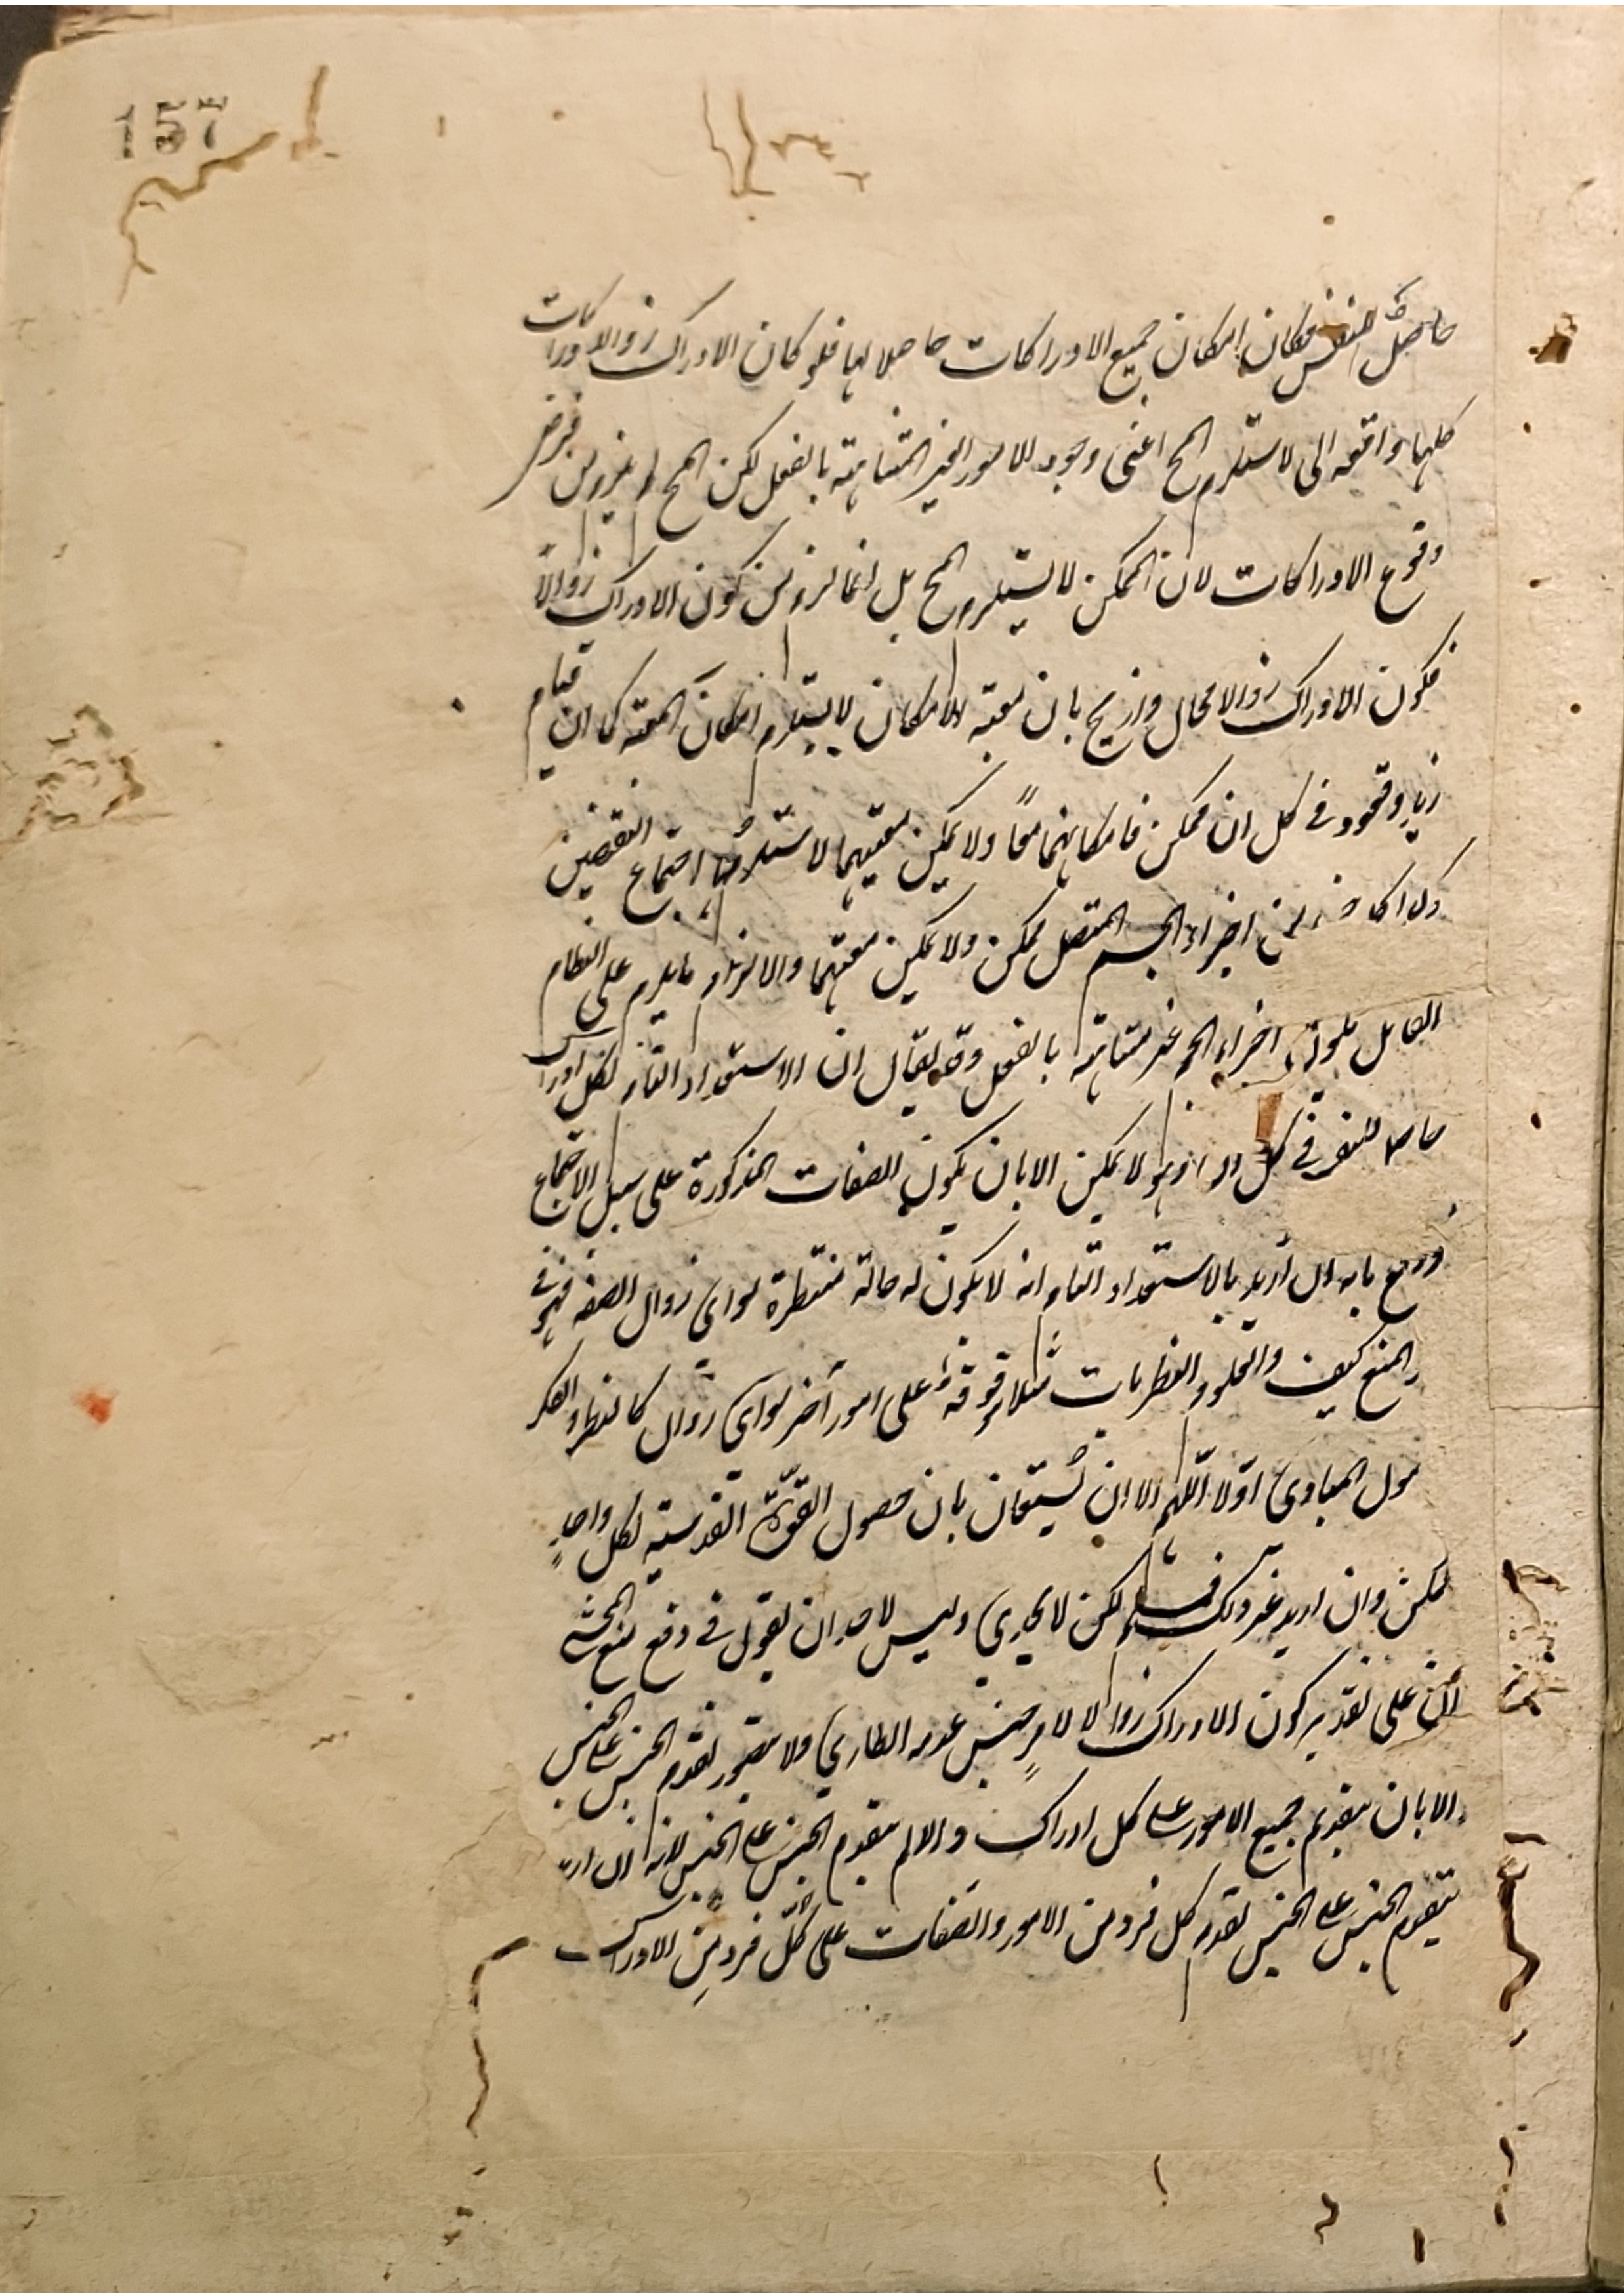 157
حاصل للنفس فكان امكان جميع الادراكات حاصلا لها فلو كان الادراك زوالا وادراكات
كلها واقعه الى لاستلزم المح اعنى وجود الامور الغير المتناهية بالفعل لكن المح لم يلزم من فرض
وقوع الادراكات لان الممكن لا يستلزم المح بل انما لزم من كون الادراك زوالا
فكون الادراك زوالا محال وازيح بان معية الامكان لا يستلزم امكان المعية كما ان قيام
زيد وقعود فى كل ان ممكن فامكانهما معًا ولا يمكن معيتهما لاستلزامها اجتماع النقيضين
وكذا من اجزاء الجسم المتصل ممكن ولا يمكن معيتهما والا لزم ما يلزم على النظام
القايل اجزاء الجسم غير متناهية بالفعل وقد يقال ان الاستعداد التام لكل ادراك
حاصل للنفس فى كل وهو لا يمكن الا بان يكون الصفات المذكورة على سبيل الاجتماع
ودفع بانه ان أريد بالاستعداد التام انه لا يكون له حالة منتظرة سواى زوال الصفه فهو فى
المنع كيف والعلوم النظريات مثلا موقوفة على امور أخر سواى زوال كالنظر والفكر
المبادى اوّلا اللّهم الا ان يُستعان بان حصول القوّة القدسية لكل واحدٍ
ممكن وان اريد غير ذلك فمسلم لكن لا يجدي وليس لاحد ان يقول فى دفع منع المحشى
انّ على تقدير كون الادراك زوالا لامرٍ جنس عدمه الطاري ولا يتصور تقدم الجنس على الجنس
الا بان يتقدم جميع الامور على كل ادراك والا لم يتقدم الجنس على الجنس لانه ان اريد
بتقدم الجنس على الجنس تقدم كل فرد من الامور والصفات على كلّ فرد مِن الادراك